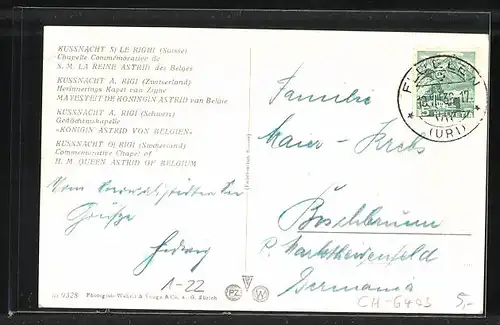 KUSSNACHT S) LE RIGHI (Suisse)
Chapelle Commémorative de
S. M. LA REINE ASTRID des Belges
KUSSNACHT A. RIGI (Zwitserland)
Herinnerings Kapel van Zijne
MAYESTEIT DE KONINGIN ASTRID van Belgie
KUSSNACHT A. RIGI (Schweiz)
Gedächtniskapelle
«KÖNIGIN ASTRID VON BELGIEN»
KUSSNACHT O) RIGI (Suetzerland)
Commemorative Chapel of
H. M. QUEEN ASTRID OF BELGIUM
Vom
Grüsse
Hedwig
1-22
9328 Photogloh-Wehrli & Vouga & Co. A.-G. Zürich
PZ
W
(URI)
Familie
Maier-Krebs
Bischbrunn
p. Marktheidenfeld
Germania
CH-6403
5,-